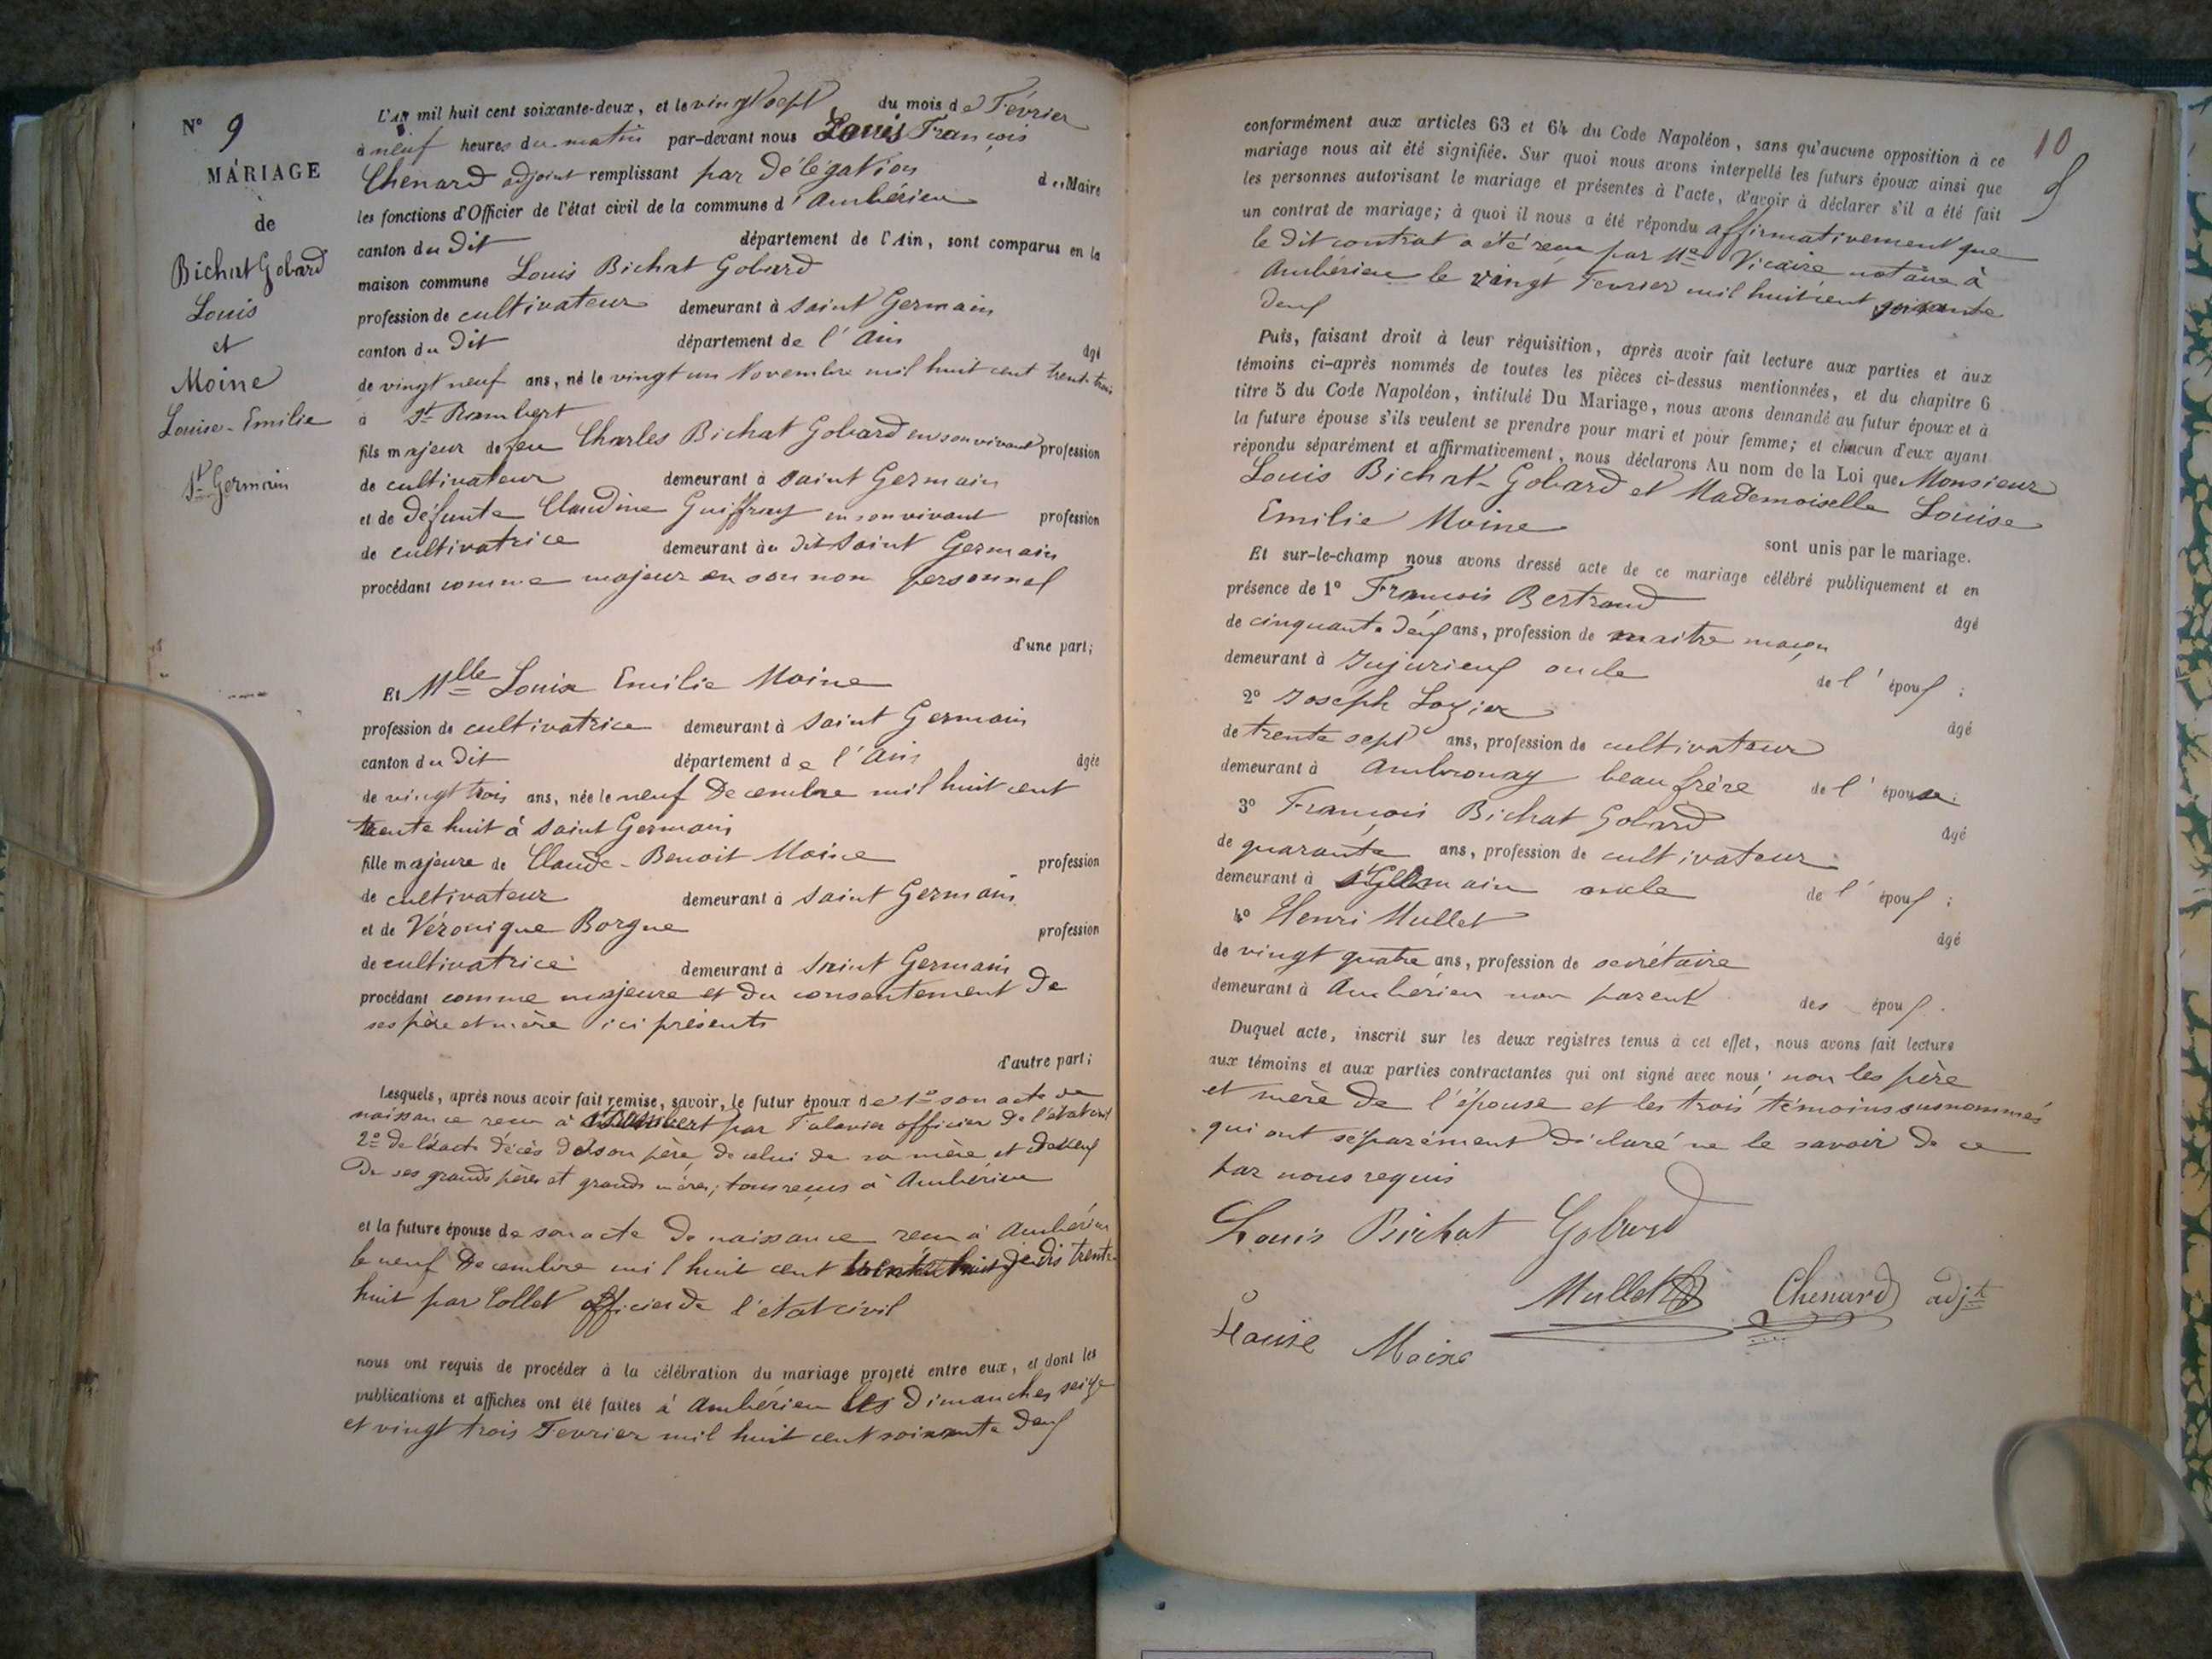 N° 9
MARIAGE
de
Bichat Gobard
Louis
et
Moine
Louise-Emilie
St Germain
L'An mil huit cent soixante-deux, et le vingt sept du mois de Février
à neuf heures du matin par-devant nous Louis François
Chenard adjoint remplissant par délégation du Maire
les fonctions d'Officier de l'état civil de la commune d'Ambérieu
canton du dit département de l'Ain, sont comparus en la
maison commune Louis Bichat Gobard
profession de cultivateur demeurant à Saint Germain
canton du dit département de l'Ain âgé
de vingt neuf ans, né le vingt un Novembre mil huit cent trente trois
à St Rambert
fils majeur de feu Charles Bichat Gobard en son vivant profession
de cultivateur demeurant à Saint Germain
et de défunte Claudine Guiffray en son vivant profession
de cultivatrice demeurant au dit Saint Germain
procédant comme majeur en son nom personnel
d'une part;
Et Mlle Louise Emilie Moine
profession de cultivatrice demeurant à Saint Germain
canton du dit département de l'Ain âgée
de vingt trois ans, née le neuf Decembre mil huit cent
trente huit à Saint Germain
fille majeure de Claude-Benoit Moine profession
de cultivateur demeurant à Saint Germain
et de Véronique Borgne profession
de cultivatrice demeurant à Saint Germain
procédant comme majeure et du consentement de
ses père et mère ici présents
d'autre part;
Lesquels, après nous avoir fait remise, savoir, le futur époux de 1° son acte de
naissance reçu à St Rambert par Talavier officier de l'état civil
2° de l'acte décès de son père, de celui de sa mère et de ceux
De ses grands pères et grands mères; tous reçus à Ambérieu
et la future épouse de son acte de naissance reçu à Ambérieu
le neuf Decembre mil huit cent trente huit je dis trente
huit par Collet officier de l'état civil
nous ont requis de procéder à la célébration du mariage projeté entre eux, et dont les
publications et affiches ont été faites à Ambérieu les Dimanches seize
et vingt trois Fevrier mil huit cent soixante deux
10
conformément aux articles 63 et 64 du Code Napoléon, sans qu'aucune opposition à ce
mariage nous ait été signifiée. Sur quoi nous avons interpellé les futurs époux ainsi que
les personnes autorisant le mariage et présentes à l'acte, d'avoir à déclarer s'il a été fait
un contrat de mariage; à quoi il nous a été répondu affirmativement que
le dit contrat a été reçu par Me Vicaire notaire à
Ambérieu le vingt Fevrier mil huit cent soixante
deux
Puis, faisant droit à leur réquisition, après avoir fait lecture aux parties et aux
témoins ci-après nommés de toutes les pièces ci-dessus mentionnées, et du chapitre 6
titre 5 du Code Napoléon, intitulé Du Mariage, nous avons demandé au futur époux et à
la future épouse s'ils veulent se prendre pour mari et pour femme; et chacun d'eux ayant
répondu séparément et affirmativement, nous déclarons Au nom de la Loi que Monsieur
Louis Bichat-Gobard et Mademoiselle Louise
Emilie Moine
sont unis par le mariage.
Et sur-le-champ nous avons dressé acte de ce mariage célébré publiquement et en
présence de 1° François Bertrand âgé
de cinquante deux ans, profession de maitre maçon
demeurant à Jujurieux oncle de l'époux;
2° Joseph Lozier âgé
de trente sept ans, profession de cultivateur
demeurant à Ambronay beau frère de l'épouse;
3° François Bichat Gobard âgé
de quarante ans, profession de cultivateur
demeurant à St Germain oncle de l'époux;
4° Henri Mullet âgé
de vingt quatre ans, profession de secrétaire
demeurant à Ambérieu non parent des époux.
Duquel acte, inscrit sur les deux registres tenus à cet effet, nous avons fait lecture
aux témoins et aux parties contractantes qui ont signé avec nous; non les père
et mère de l'épouse et les trois témoins susnommés
qui ont séparément déclaré ne le savoir de ce
par nous requis
Louis Bichat Gobard
Mullet Chenard adjt
Louise Moine